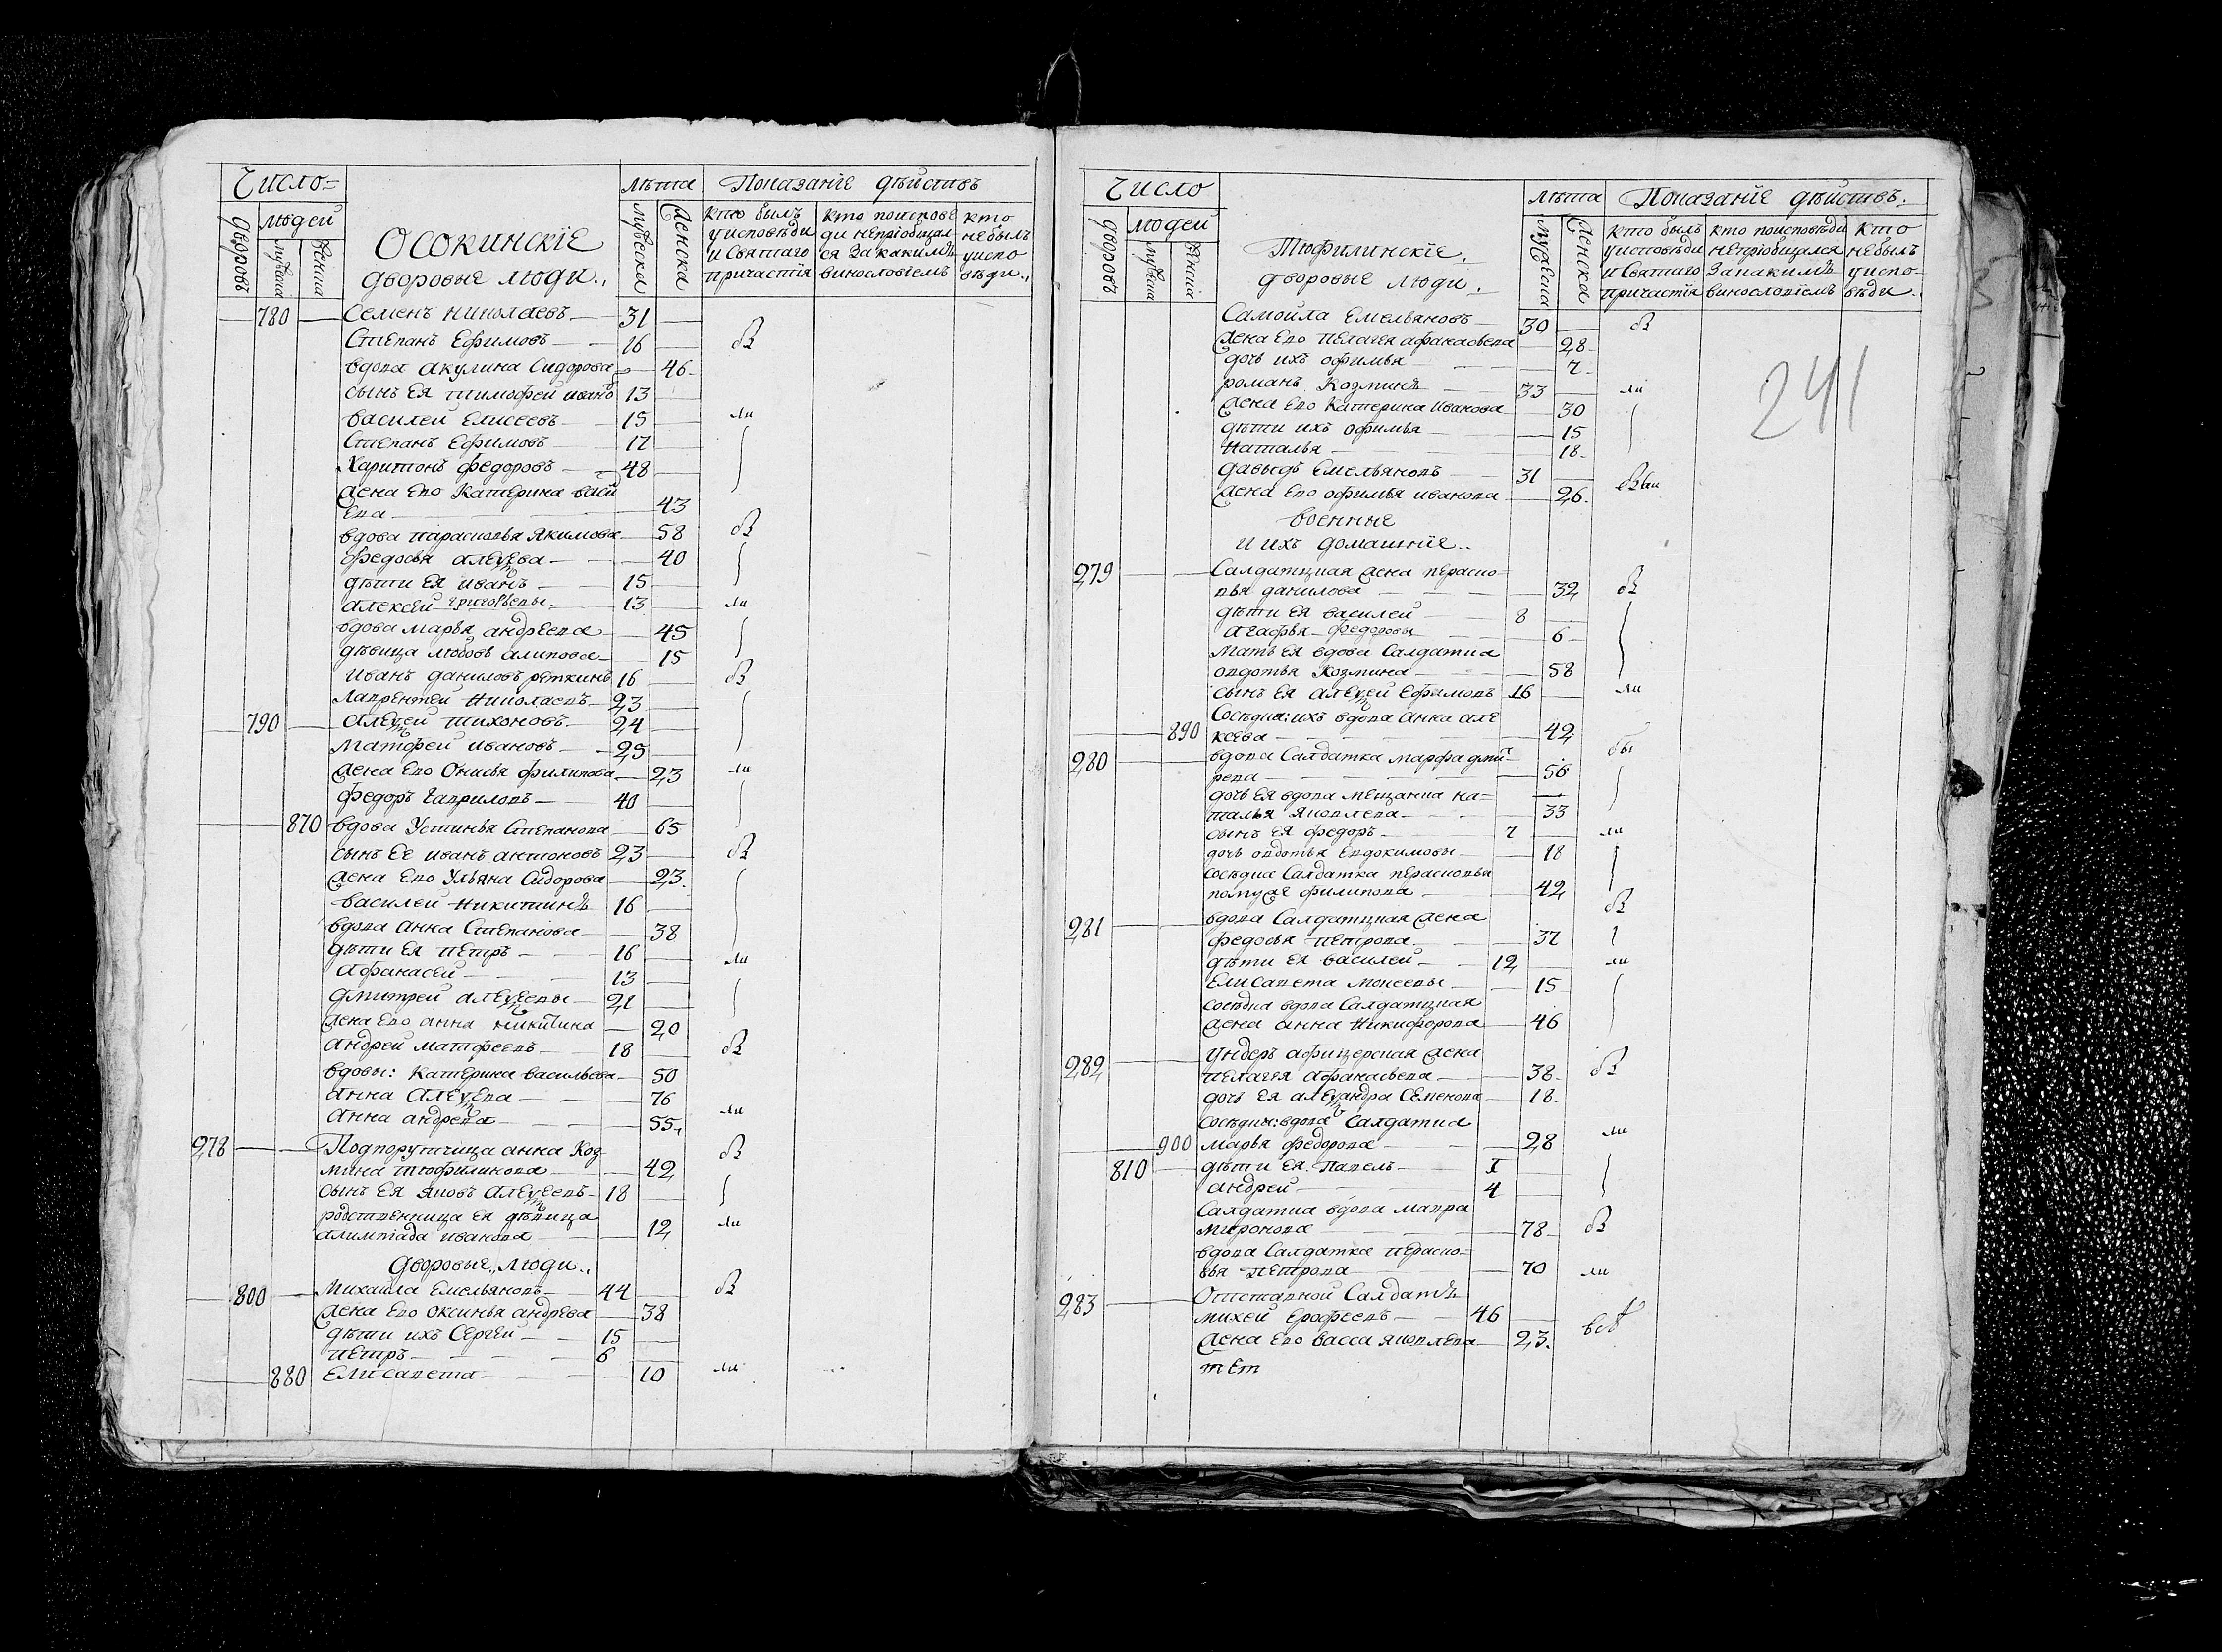 Число=
лѣта Показанїе дѣиствъ
дворовъ
людей
мужеска
женска
ОСОКИНСКІЕ
дворовые люди.,
мужеска
женска
кто былъ кто поиспове кто
уисповѣди ди непрїобщал небылъ
и Святаго ся За какимъ уиспо
причастїя винословїемъ вѣди.,
780 Семенъ николаевъ 31
Степанъ Ефимовъ 16
вдова акулина Сидорова 46
сынъ Ея тимофей ивано 13
василей Елисеевъ 15 ли
Степанъ Ефимовъ 17
Харитонъ федоровъ 48
жена Ево Катерина васи
Ева 43
вдова парасковья Якимова 58
федосья алеѯева 40
дѣти Ея иванъ 15
алексей григорьевы 13 ли
вдова марья андреева 45
дѣвица любовь алипова 15
иванъ даниловъ реткинъ 16
лаврентей николаевъ 23
790 алеѯей тихоновъ 24
матфей ивановъ 25
жена Ево Онисья филипова 23 ли
федоръ гавриловъ 40
870 вдова Устинья Степанова 65
сынъ Ее иванъ антоновъ 23
жена Ево Ульяна Сидорова 23
василей никитинъ 16
вдова анна Степанова 38
дѣти Ея петръ 16 ли
афанасей 13
дмитрей алеѯеевы 21
жена Ево анна никитина 20
андрей матфеевъ 18
вдовы: катерина васильева 50
анна алеѯева 76
анна андрева 55 ли
278 Подпорутчица анна Коз
мина тюфиликова 42
сынъ Ея яковъ алеѯеевъ 18
родственница Ея дѣвица
алимпіада иванова 12 ли
дворовые люди.,
800 михаила Емельяновъ 44
жена Ево оксинья андрева 38
дѣти ихъ Сергей 15
петръ 6
880 Елисавета 10 ли
Число
лѣта Показанїе дѣиствъ.
дворовъ
людей
мужеска
женска
Тюфилинскїе.
дворовые люди.
мужеска
женска
кто былъ кто поисповѣди кто
уисповѣди непрїобщился небылъ
и Святаго За какимъ уиспо-
причастїя винословїемъ вѣди.
241
Самойла Емельяновъ 30
жена Ево пелагея афанасьева 28
дочь ихъ офимья 7
романъ Козминъ 33 ли
жена Ево Катерина иванова 30
дѣти ихъ офимья 15
наталья 18
давыдъ Емельяновъ 31
жена Ево офимья иванова 26
военные
и ихъ домашнїе..
279 Салдатцкая жена пераско=
вья данилова 32
дѣти Ея василей 8
агафья федоровы 6
мать Ея вдова Салдатка
овдотья Козмина 58
сынъ Ея алеѯей Ефимовъ 16 ли
Сосѣдка: ихъ вдова анна але
890 ксева 42
280 вдова Салдатка марфа дми бы
рева 56
дочь Ея вдова мещанка на=
талья яковлева 33
сынъ Ея федоръ 7 ли
дочь овдотья Евдокимовы 18
сосѣдка Салдатка перасковья
помуже филипова 42
281 вдова Салдатцкая жена
федосья петрова 37
дѣти Ея василей 12 ли
Елисавета моисевы 15
сосѣдка вдова Салдатцкая
жена анна никифорова 46
282 ундеръ афицерская жена
пелагея афанасьева 38
дочь Ея алеѯандра Семенова 18
сосѣдка: вдова Салдатка
900 марья федорова 28 ли
810 дѣти Ея павелъ I
андрей 4
Салдатка вдова мавра
миронова 78
вдова Салдатка пераско=
вья петрова 70 ли
283 Отставной Салдатъ
михей Ерофеевъ 46
жена Ево васса яковлева 23.
тет